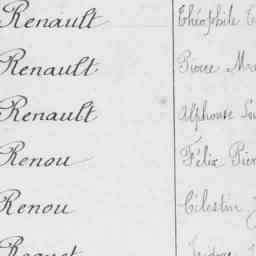 Renault Théophile
Renault Pierre
Renault Alphonse
Renou Félix
Renou Célestin
Isidore